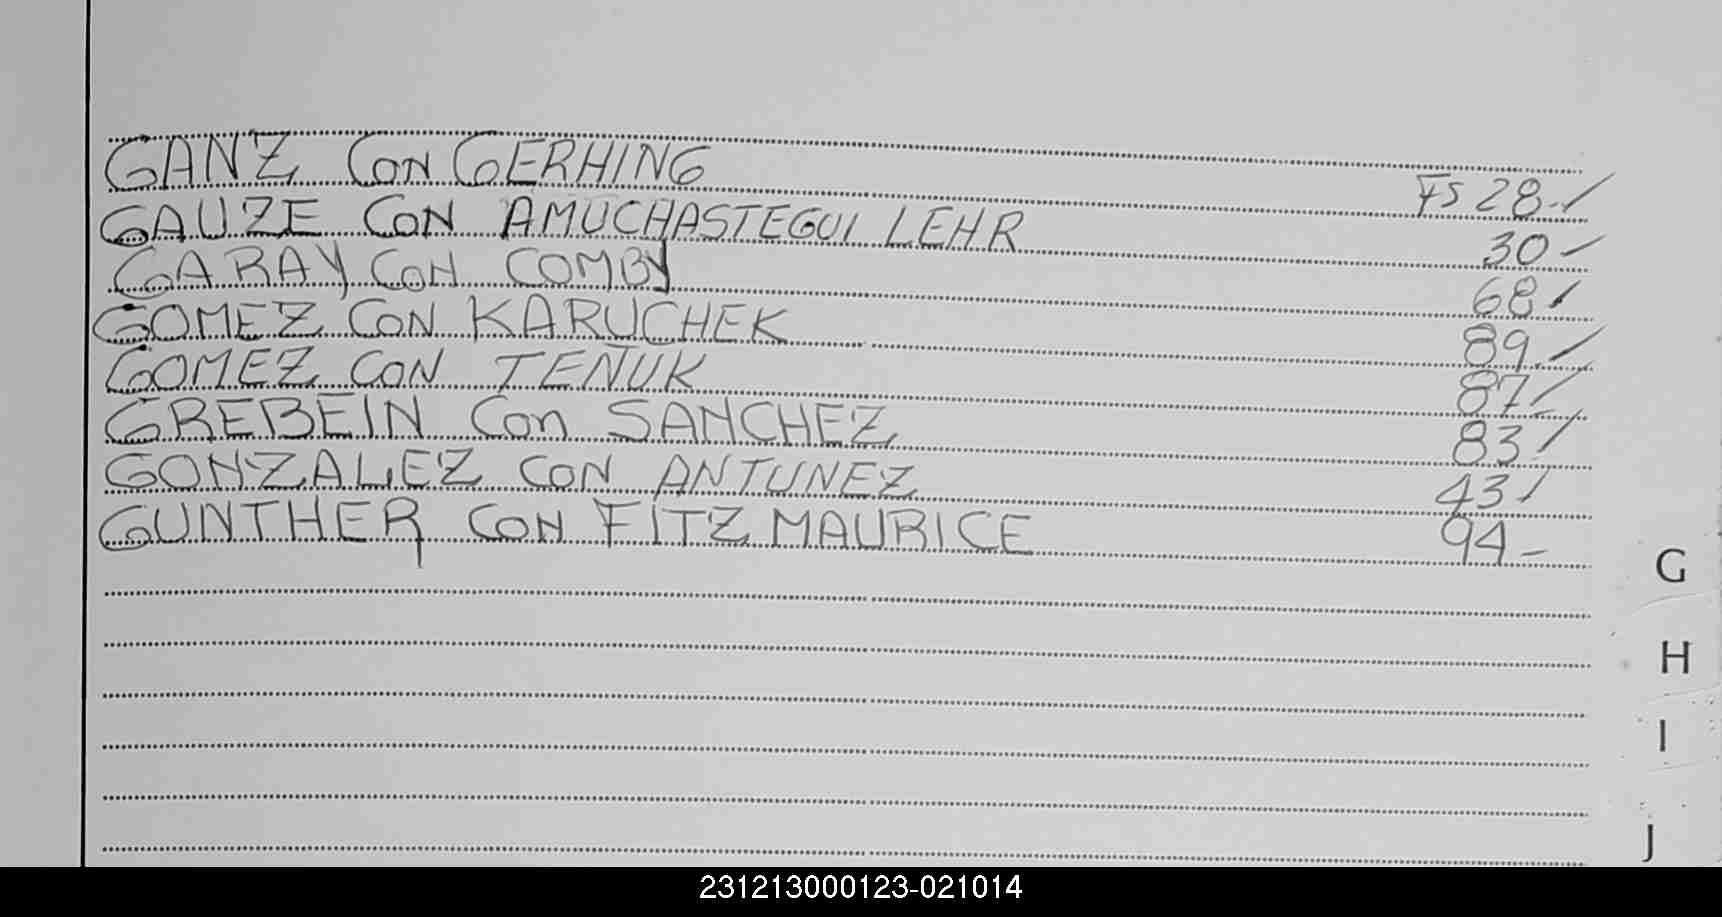 GANZ CON GERHING FS 28-/
GAUZE CON AMUCHASTEGUI LEHR 30-
GARAY CON COMBY 68/
GOMEZ CON KARUCHEK 89/
GOMEZ CON TEÑUK 87/
GREBEIN Con SANCHEZ 83/
GONZALEZ CON ANTUNEZ 43/
GUNTHER CON FITZ MAURICE 94-
G
H
I
J
231213000123-021014